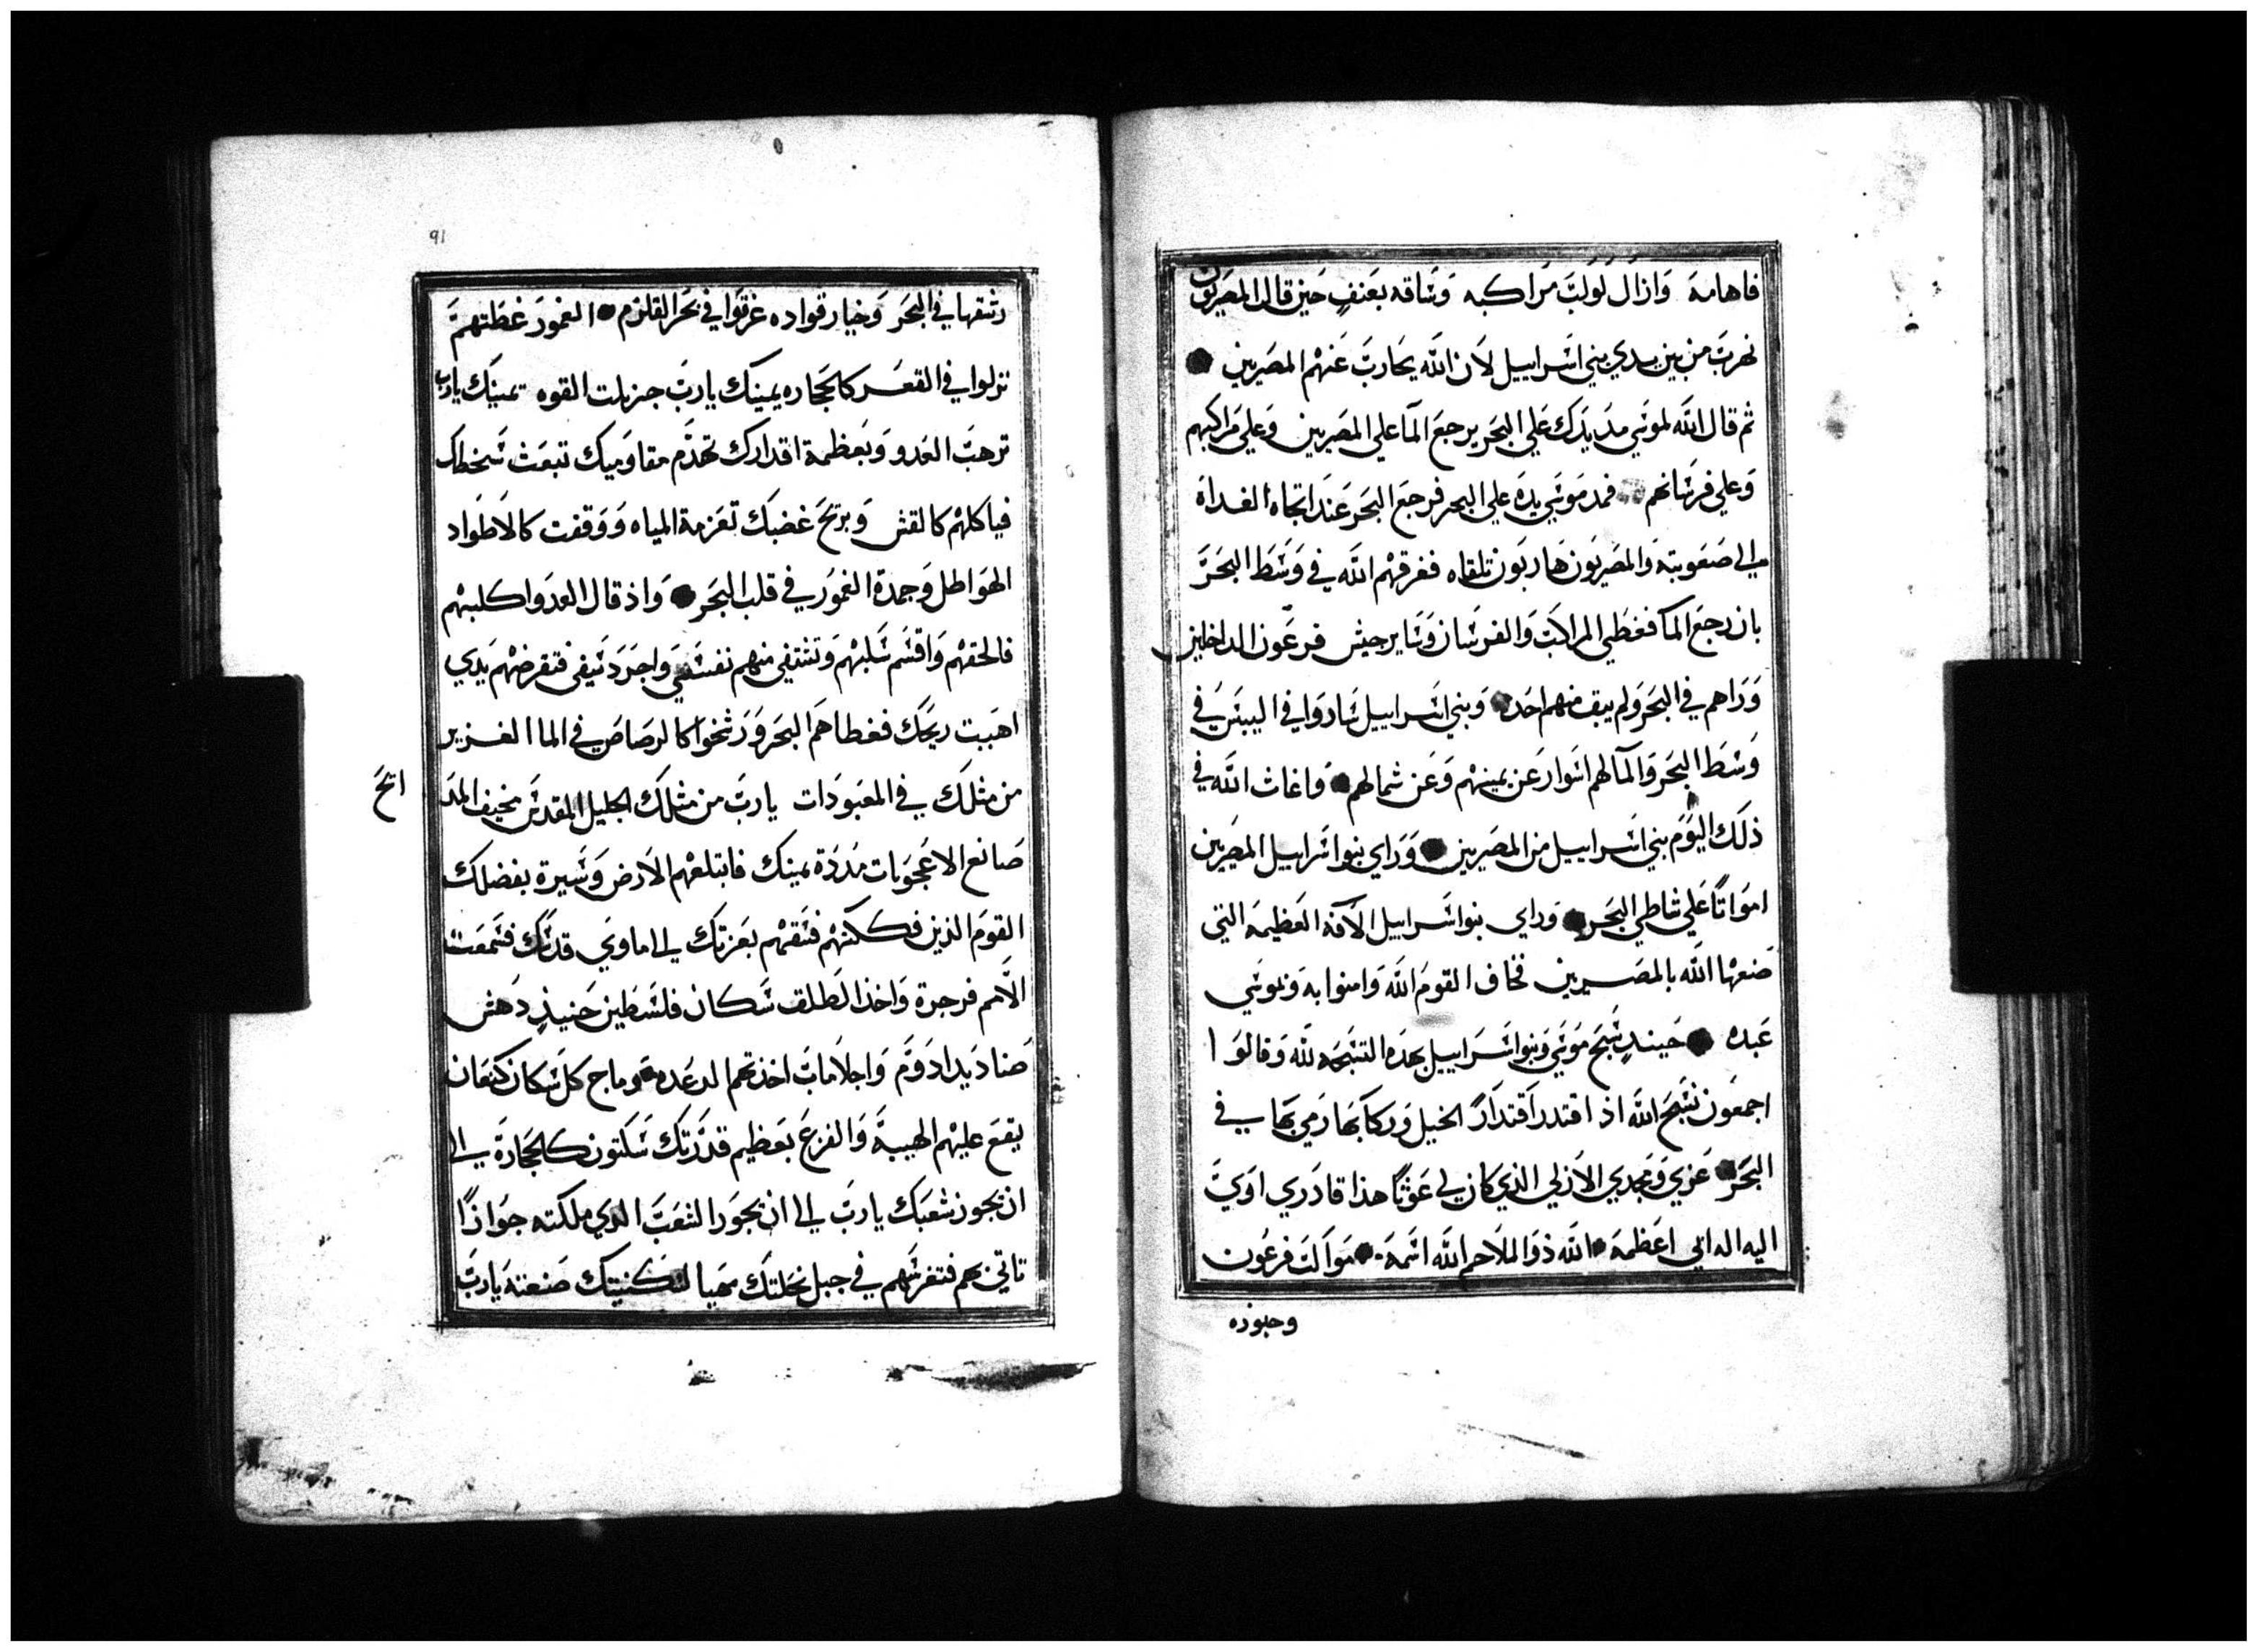 فاهامه وازال لولب مراكبه وساقه بعنف حين قال المصريون
نهرب من بين يدي بني اسراييل لان الله يحارب عنهم المصريين
ثم قال الله لموسي مد يدك علي البحر يرجع المآ علي المصريين وعلي مراكبهم
وعلي فرسانهم فمد موسي يده علي البحر فرجع البحر عند اتجاه الغداة
الي صعوبته والمصريون هاربون تلقاه فغرقهم الله في وسط البحر
بان رجع المآ فغطي المراكب والفرسان وساير جيش فرعون الداخلين
وراهم في البحر ولم يبق منهم احد وبني اسراييل ساروا في اليبس في
وسط البحر والمآ لهم اسوار عن يمينهم وعن شمالهم واغاث الله في
ذلك اليوم بني اسراييل من المصريين وراي بنوا اسراييل المصريين
امواتا علي شاطي البحر وراي بنوا اسراييل الآفه العظيمه التي
صنعها الله بالمصريين فخاف القوم الله وامنوا به وبموسي
عبده حينيذ سبح موسي وبنوا اسراييل بهذه التسبحه لله وقالوا
اجمعون نسبح الله اذ اقتدر اقتدارا الخيل وركابها رمي بها في
البحر عزي ومجدي الازلي الذي كان لي غوثا هذا قادري اوي
اليه اله ابي اعظمه الله ذوا الملاحم الله اسمه مواكب فرعون
وجنوده
٩١
زشقها في البحر وخيار قواده غرقوا في بحر القلزم الغمور غطتهم
نزلوا في القعر كالحجاره يمينك يارب جزيلت القوه يمينك يارب
ترهب العدو وبعظمة اقتدارك تهدم مقاوميك تبعث سخطك
فياكلهم كالقش وبريح غضبك تعزمة المياه ووقفت كالاطواد
الهواطل وجمدة الغمور في قلب البحر واذ قال العدوا كلبهم
فالحقهم واقسم سلبهم وتشتفي منهم نفسي واجرد سيفي فتقرضهم يدي
اهببت ريحك فغطاهم البحر ورسخوا كالرصاص في الما الغزير
من مثلك في المعبودات يارب من مثلك الجليل المقدس مخيف المد
اتح
صانع الاعجوبات مددة يمينك فابتلعهم الارض وسيرة بفضلك
القوم الذين فككتهم فسقهم بعزتك الي ماوي قدسك فسمعت
الامم فرجزة واخذ الطلق سكان فلسطين حنيذ دهش
صناديد ادوم واجلا ماب اخذتهم الرعده وماج كل سكان كنعان
يقع عليهم الهيبة والفزع بعظيم قدرتك سكتون كالحجارة الي
ان يجوز شعبك يارب الي ان يجوز الشعب الذي ملكته جوازا
تاتي بهم فتغرسهم في جبل نحلتك مهيا لسكنيتك صنعته يارب